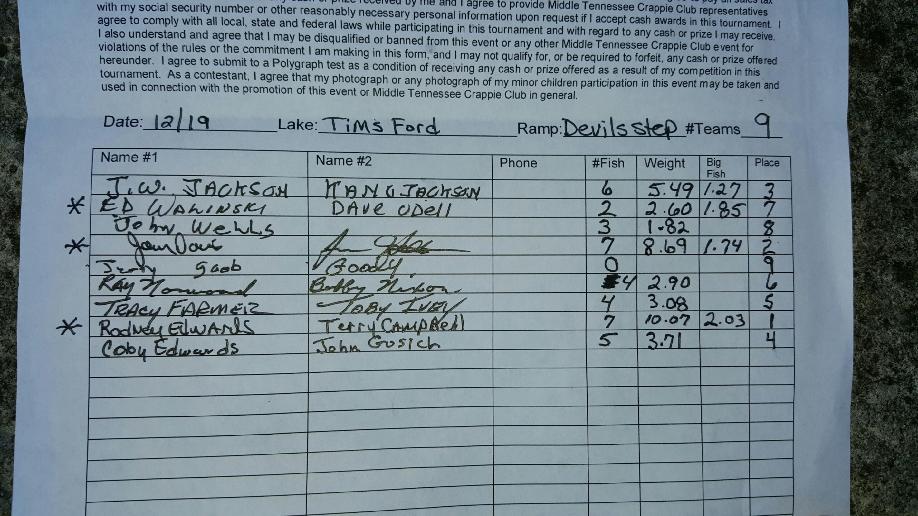 received by me and I agree to provide Middle Tennessee Crappie Club representatives
with my social security number or other reasonably necessary personal information upon request if I accept cash awards in this tournament. I
agree to comply with all local, state and federal laws while participating in this tournament and with regard to any cash or prize I may receive.
I also understand and agree that I may be disqualified or banned from this event or any other Middle Tennessee Crappie Club event for
violations of the rules or the commitment I am making in this form, and I may not qualify for, or be required to forfeit, any cash or prize offered
hereunder. I agree to submit to a Polygraph test as a condition of receiving any cash or prize offered as a result of my competition in this
tournament. As a contestant, I agree that my photograph or any photograph of my minor children participation in this event may be taken and
used in connection with the promotion of this event or Middle Tennessee Crappie Club in general.
Date: 12/19 Lake: Tims Ford Ramp: Devils Step #Teams 9
Name #1 Name #2 Phone #Fish Weight Big Fish Place
J.W. JACKSON JACKSON 6 5.49 1.27 3
* ED WAWINSKI DAVE ODell 2 2.60 1.85 7
John Wells 3 1.82 8
* 7 8.69 1.74 2
Goody 0 9
RAY Norwood Bobby Nixon 4 2.90 6
TRACY FARMER TOBY IVEY 4 3.08 5
* Rodney EDWARDS Terry CAMPBell 7 10.07 2.03 1
Coby Edwards John Gosich 5 3.71 4